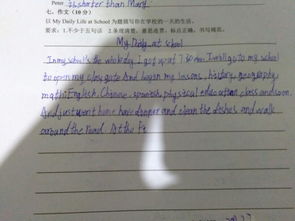 Peter is shorter than Mary.
七、作文（10分）
以 My Daily Life at School 为题描写你在学校的一天的生活。
要求：1.不少于五句话 2.条理清楚，意思连贯，标点正确，书写规范。
My Daily at school
In my school's the I get up at 7 to my school
to open my class gate And began my lessons, history, geography
math English. Chinese, spanish, physical education class and soon.
And just went home have danper and clean the dishes and walk
around the road. At the